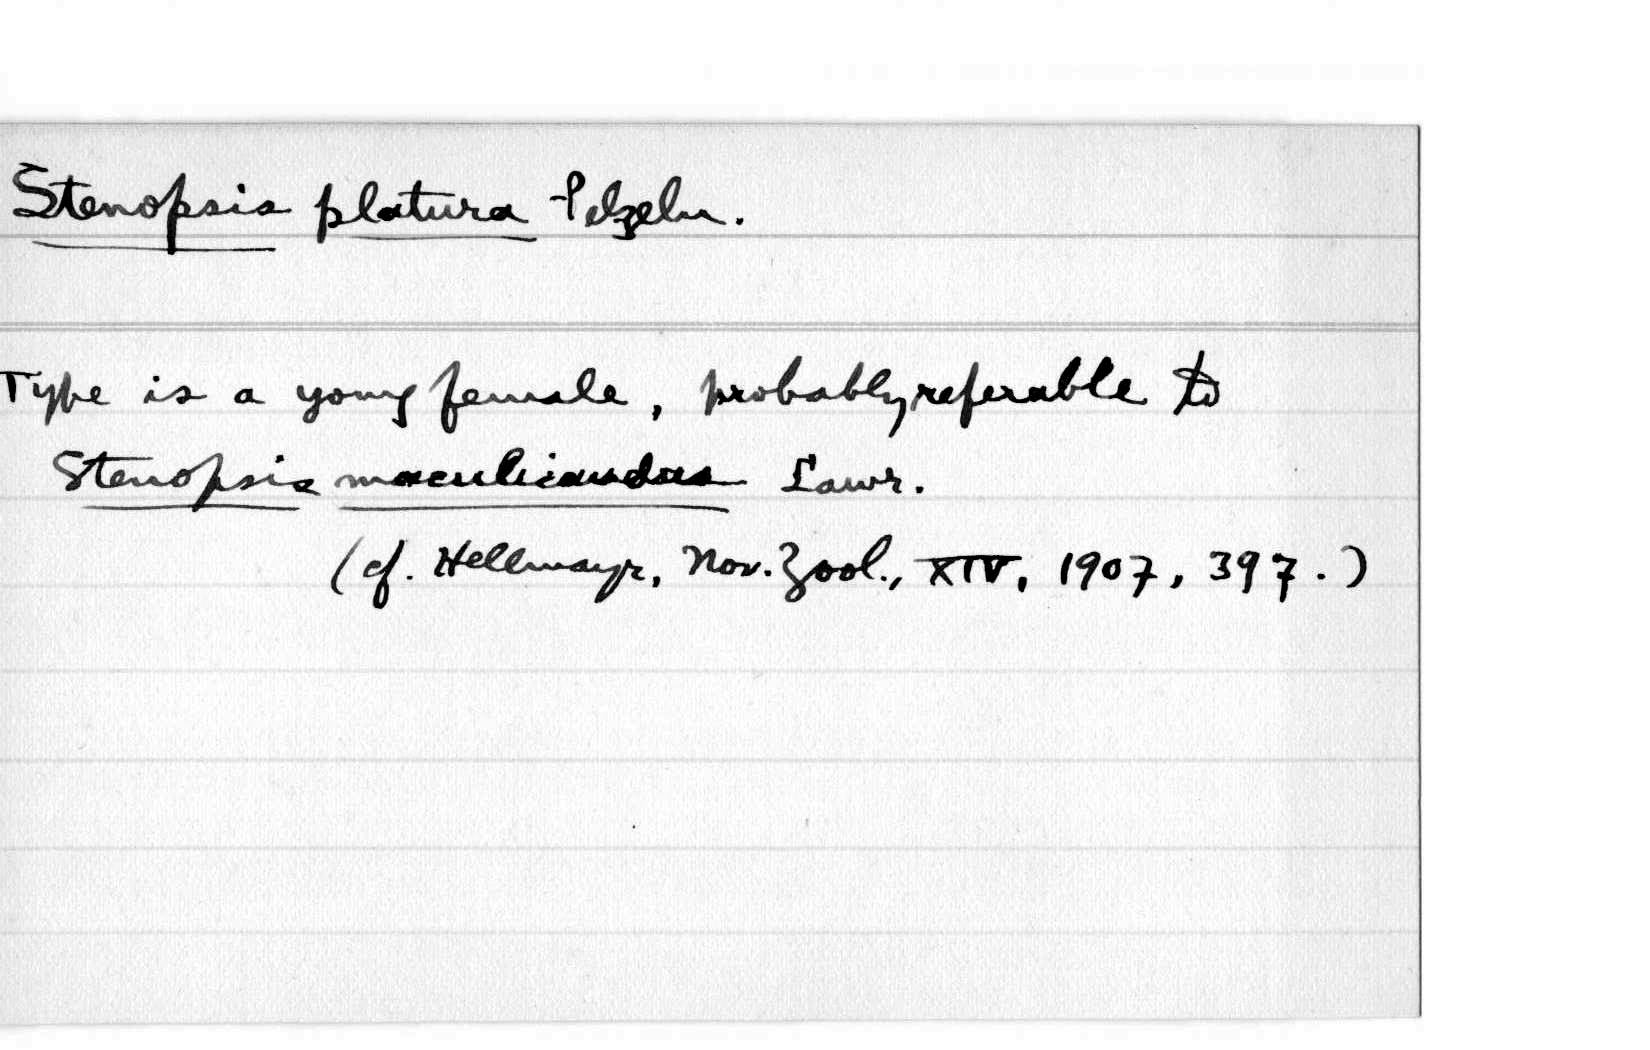 Stenopsis platura Pelzeln.
Type is a young female, probably referable to
Stenopsis maculicaudus Lawr.
(cf. Hellmayr, Nov. Zool., XIV, 1907, 397.)